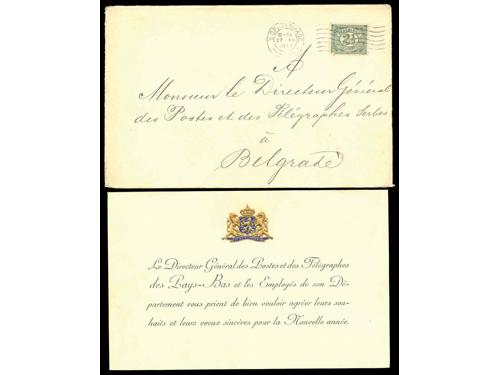 A
Monsieur le Directeur Général
des Postes et des Télégraphes Serbes
à
Belgrade
Le Directeur Général des Postes et des Télégraphes
des Pays-Bas et les Employés de son Dé-
partement vous prient de bien vouloir agréer leurs sou-
haits et leurs vœux sincères pour la Nouvelle année.